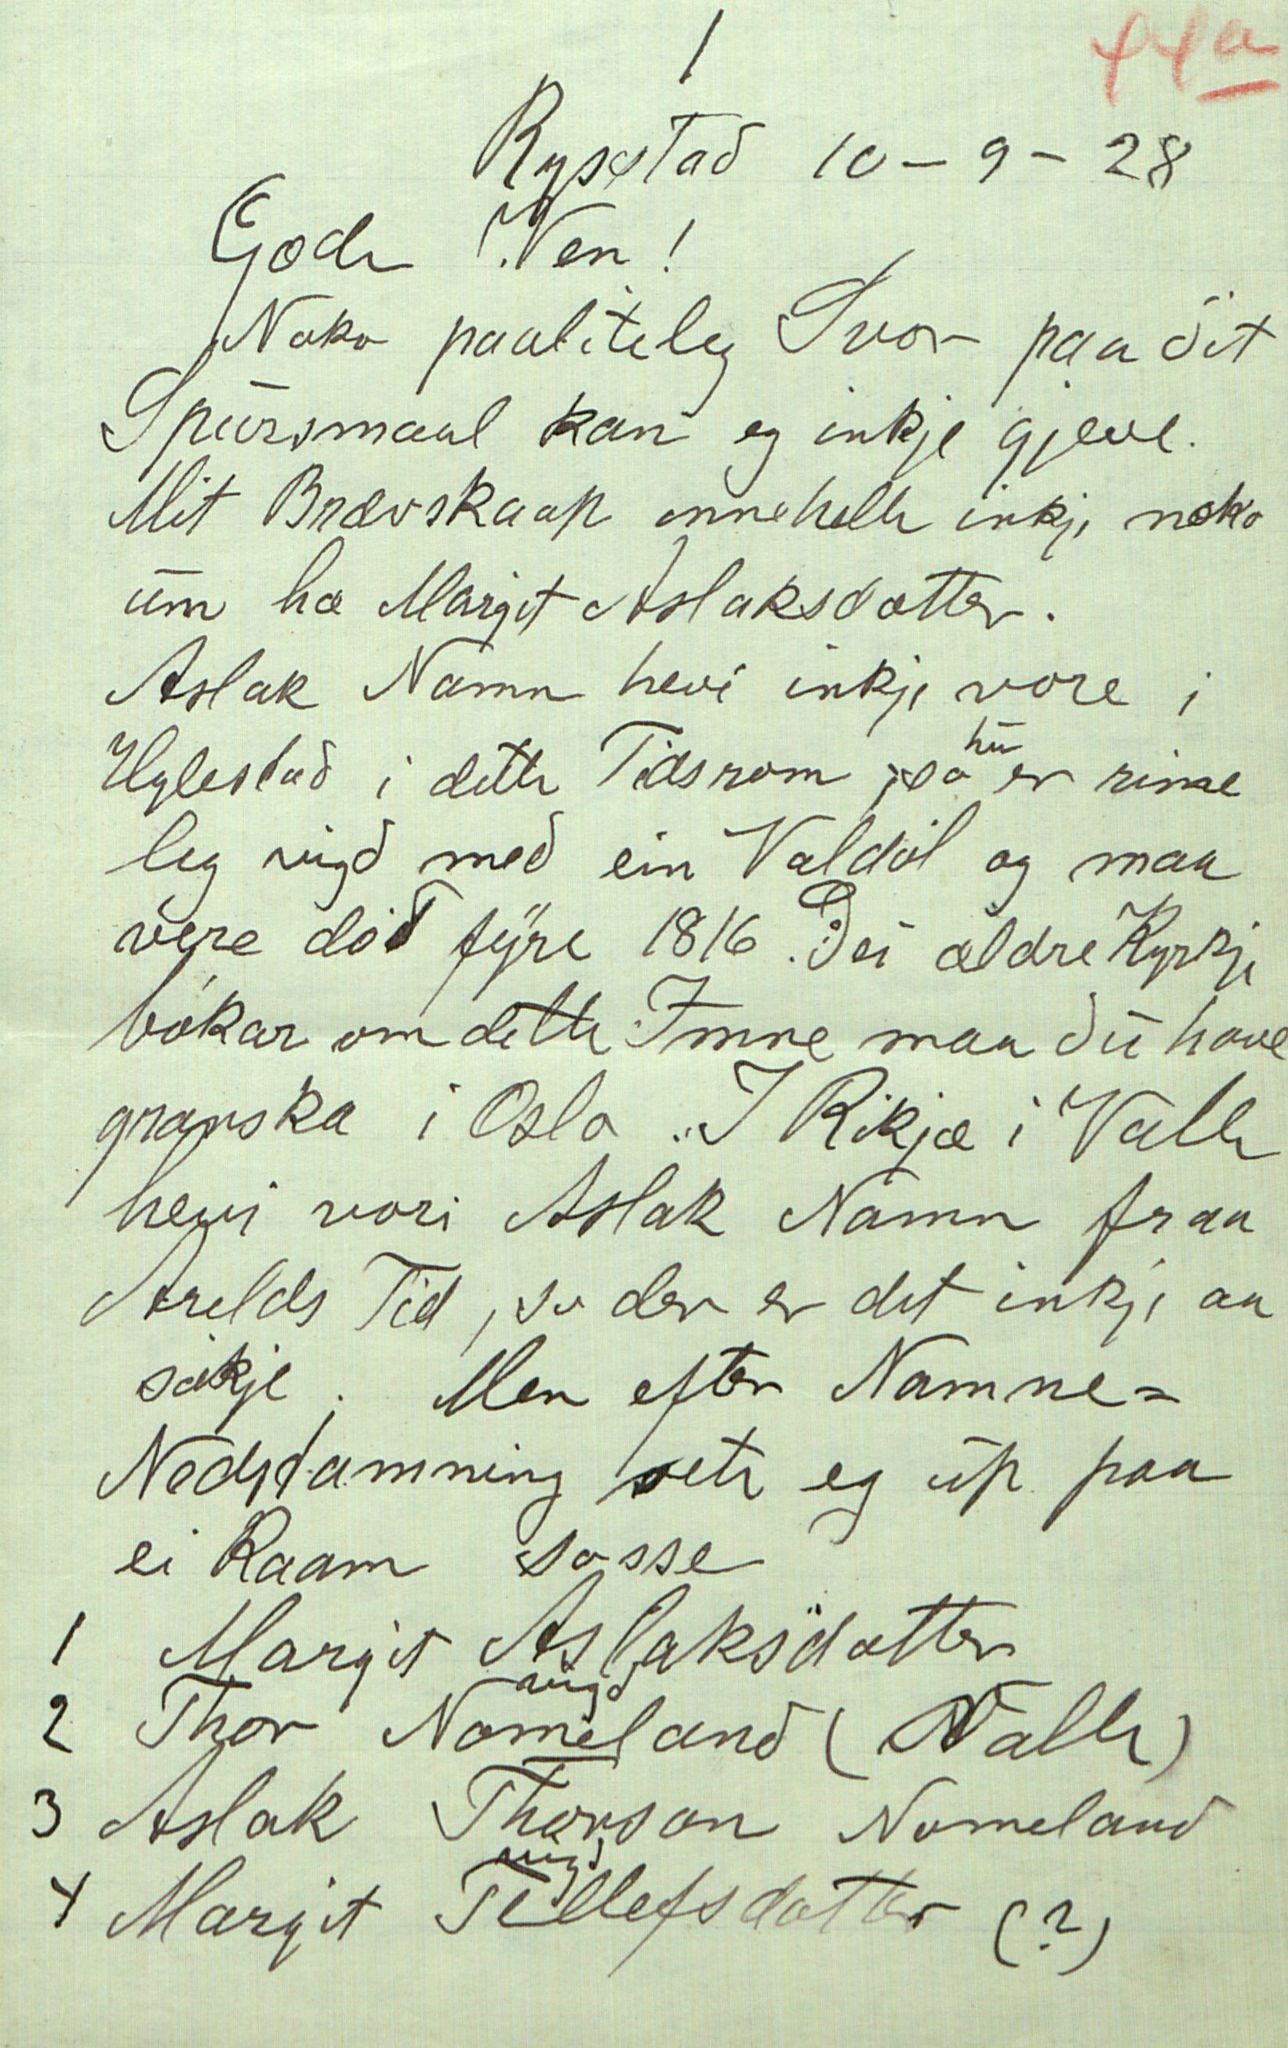 44a
1
Rysstad 10-9-28
Gode Ven!
Noko paaliteleg Svor paa dit
Spursmaal kan eg inkje gjeve.
Mit Brævskaap innehelle inkje noko
um ho Margit Aslaksdotter.
Aslak Namn hevi inkje vore i
Hylestad i dette Tidsrom, so hu er rime
leg vigd med ein Valdøl og maa
vere død fyre 1816. Dei ældre Kyrkje
bøkar om dette Emne maa du have
granska i Oslo. I Rikjæ i Valle
hevi vori Aslak Namn fraa
Arelds Tid, so der er det inkje aa
søkje. Men efter Namne=
Nedstamning sete eg up paa
ei Raam sosse
1 Margit Aslaksdotter
vigd
2 Thor Nomeland (Valle)
3 Aslak Thorson Nomeland
vigd
4 Margit Tellefsdotter (?)